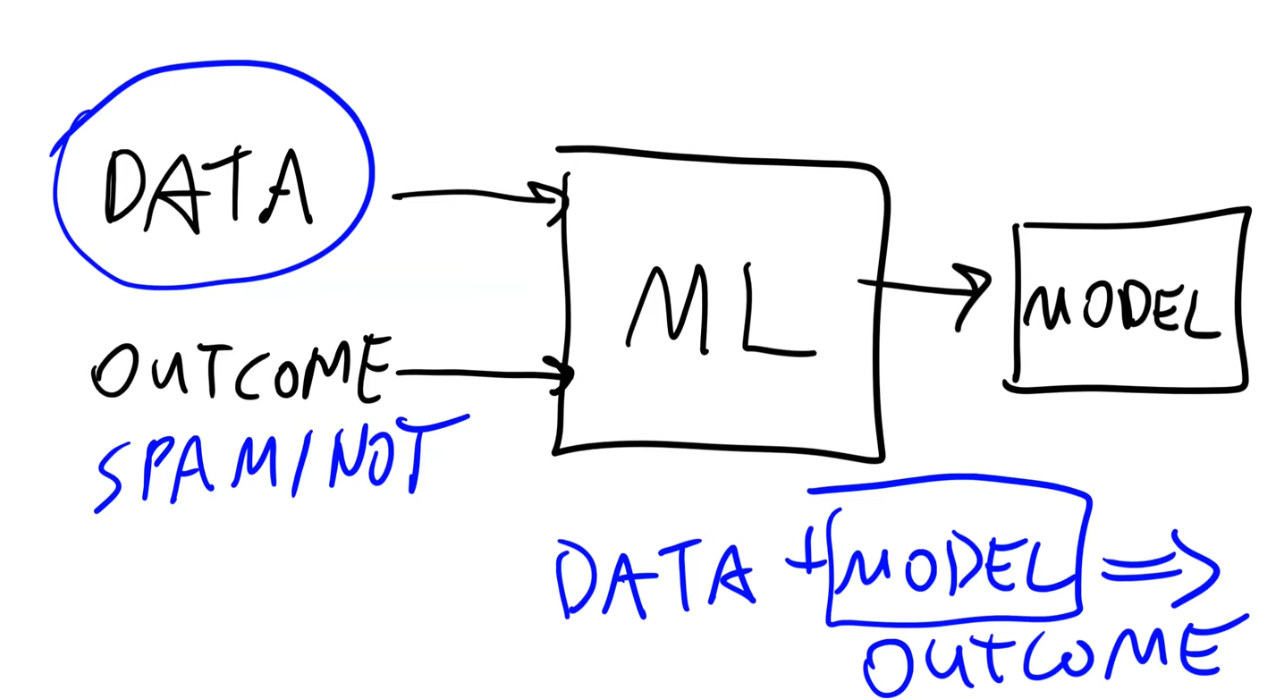 DATA
OUTCOME
SPAM/NOT
ML
MODEL
DATA + MODEL ⇒
OUTCOME